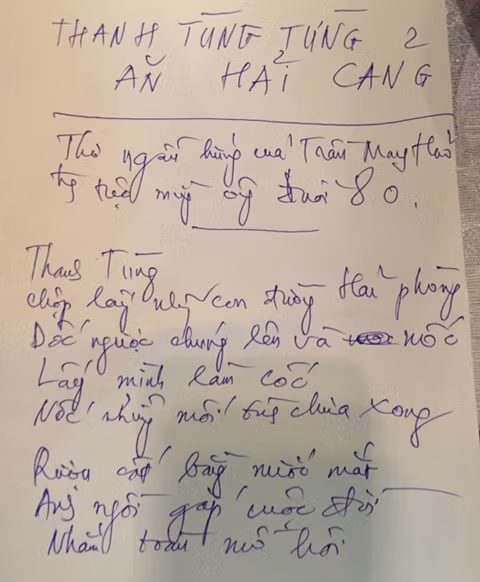 THANH TÙNG TÚNG 2
ĂN HẢI CANG
Thơ ngẫu hứng của Trần May Hải
mấy ông dưới 80.
Thanh Tùng
chộp lấy những con đường Hải phòng
Dốc ngược chúng lên và nốc
Lấy mình làm cốc
Nốc những mối tình chưa xong
Rượu cất bằng nước mắt
Anh ngồi gắp cuộc đời
Nhắm toàn mồ hôi